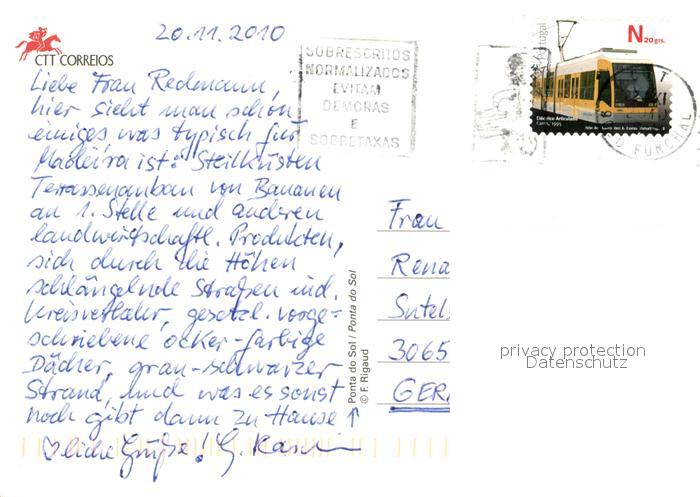 20.11.2010
CTT CORREIOS
Liebe Frau Redmann,
hier sieht man schon
einiges was typisch für
Madeira ist: Steilküsten
Terrassenanbau von Bananen
an 1. Stelle und anderen
landwirtschaftl. Produkten,
sich durch die Höhen
schlängelnde Straßen incl.
Kreisverkehr, gesetzl. vorge-
schriebene ocker-farbige
Dächer, grau-schwarzer
Strand, und was es sonst
noch gibt dann zu Hause ↑
♡liche Grüße! G.
SOBRESCRITOS
NORMALIZADOS
EVITAM
DEMORAS
E
SOBRETAXAS
Portugal
N20grs.
Eléctrico Articulado
Carris, 1995
FUNCHAL
Ponta do Sol / Ponta do Sol
© F. Rigaud
Frau
Rena
Sutel
3065
GER
privacy protection
Datenschutz